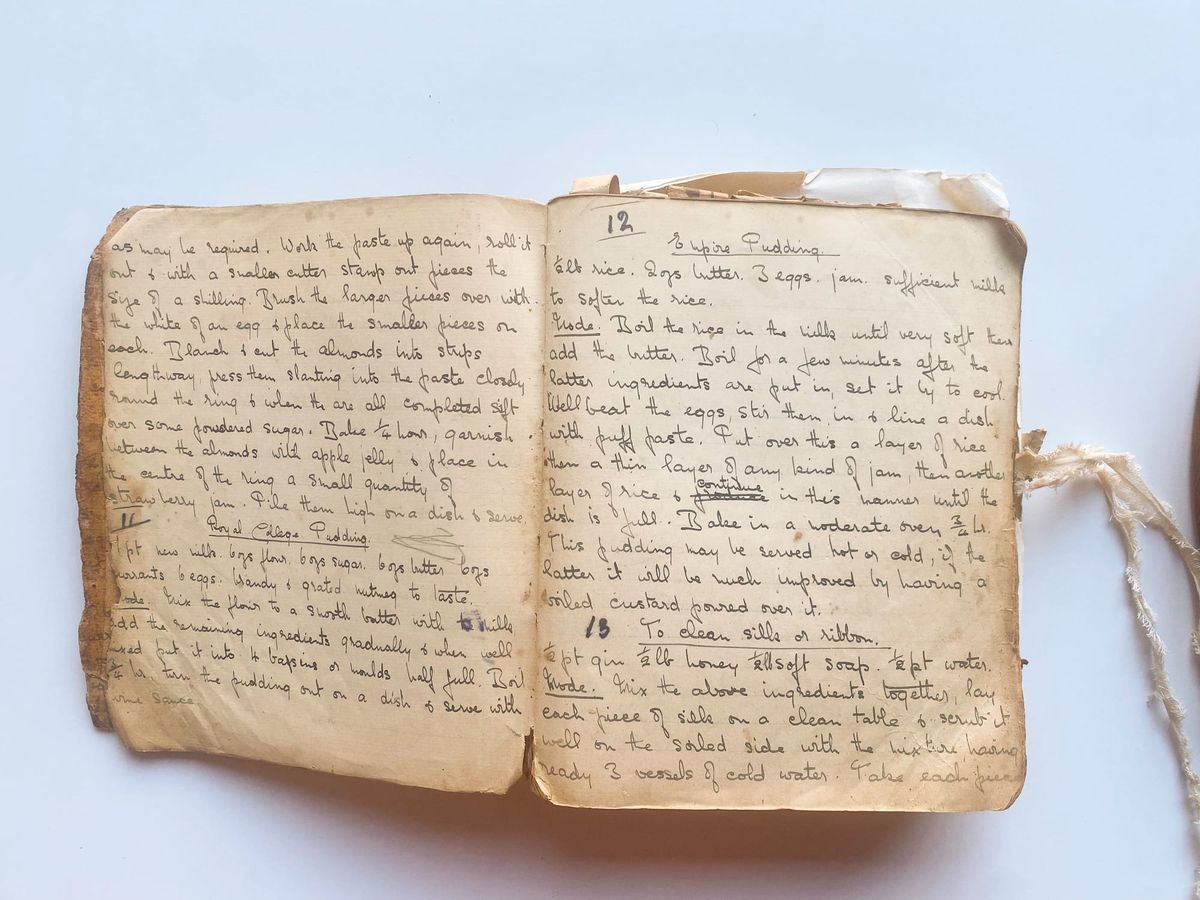 as may be required. Work the paste up again, roll it
out & with a smaller cutter stamp out pieces the
size of a shilling. Brush the larger pieces over with
the white of an egg & place the smaller pieces on
each. Blanch & cut the almonds into strips
lengthway, press them slanting into the paste closely
round the ring & when the are all completed sift
over some powdered sugar. Bake 1/4 hour, garnish
between the almonds with apple jelly & place in
the centre of the ring a small quantity of
strawberry jam. Pile them high on a dish & serve.
11
Royal College Pudding.
1 pt new milk. 6ozs flour. 6ozs sugar. 6ozs butter 6ozs
currants 6 eggs. brandy & grated nutmeg to taste.
Mode. Mix the flour to a smooth batter with milk
add the remaining ingredients gradually & when well
mixed put it into 4 basins or moulds half full. Boil
3/4 hr. turn the pudding out on a dish & serve with
wine sauce
12
Empire Pudding.
1/2 lb rice. 2ozs butter. 3 eggs. jam. sufficient milk
to soften the rice.
Mode. Boil the rice in the milk until very soft then
add the butter. Boil for a few minutes after the
latter ingredients are put in, set it by to cool.
Well beat the eggs, stir them in & line a dish
with puff paste. Put over this a layer of rice
then a thin layer of any kind of jam, then another
layer of rice & continue in this manner until the
dish is full. Bake in a moderate oven 3/4 hr.
This pudding may be served hot or cold, if the
latter it will be much improved by having a
boiled custard poured over it.
13 To clean silk or ribbon.
1/2 pt gin 1/2 lb honey 1/2 lb soft soap. 1/2 pt water.
Mode. Mix the above ingredients together, lay
each piece of silk on a clean table & scrub it
well on the soiled side with the mixture having
ready 3 vessels of cold water. Take each piece